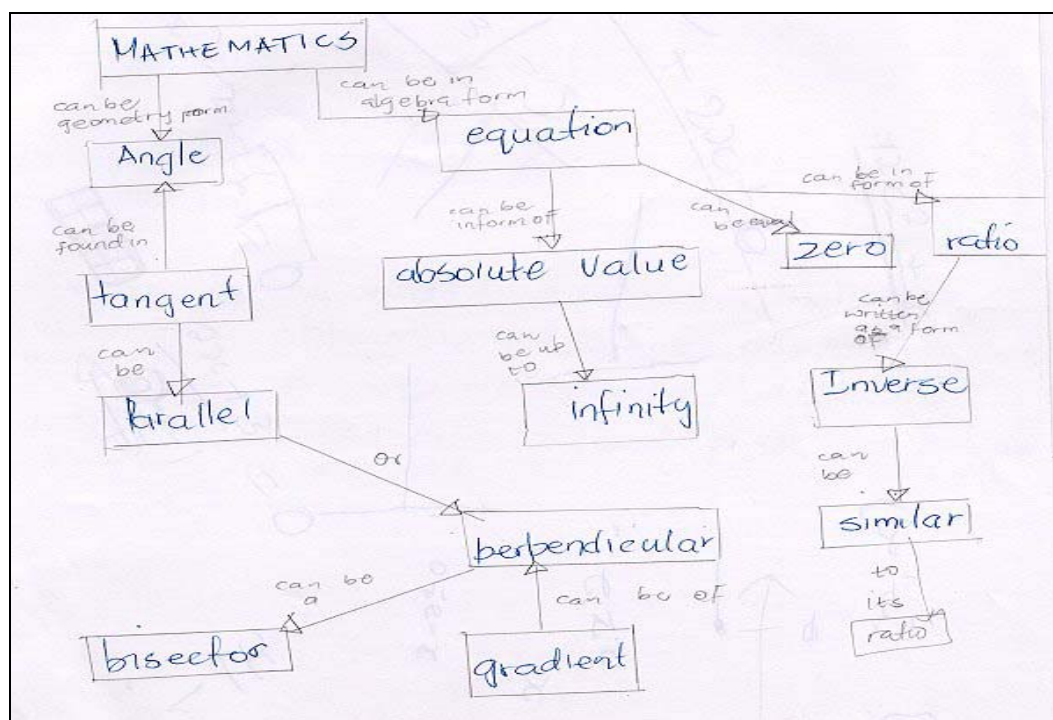 MATHEMATICS
can be
geometry form
can be in
algebra form
Angle
equation
can be
found in
can be
inform of
can
be equal
can be in
form of
tangent
absolute Value
zero
ratio
can
be
can
be up
to
can be
written
as a form
of
Parallel
infinity
Inverse
or
can
be
berpendicular
similar
can be
a
can be of
to
its
bisector
gradient
ratio